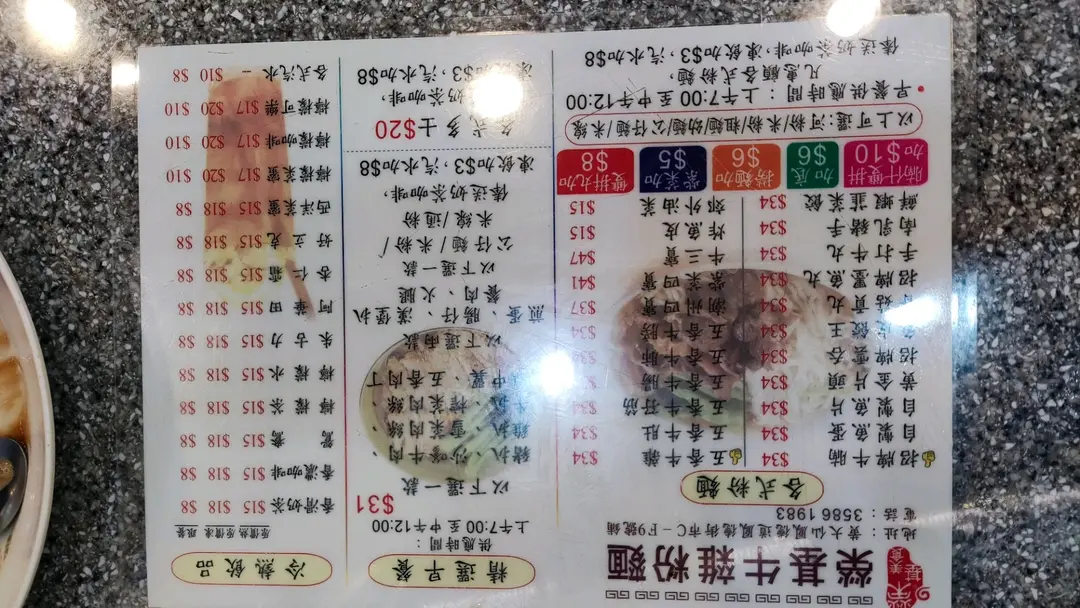 榮基美食
榮基牛雜粉麵
地址：黃大仙鳳德道鳳德街市C－F9號舖
電話：3586 1983
各式粉麵
招牌牛腩 $34
自製魚蛋 $34
自製魚片 $34
招牌雲吞 $34
餃王 $34
貢丸 $34
招牌墨魚丸 $34
手打牛丸 $34
南乳豬手 $34
鮮蝦韮菜餃 $34
五香牛雜 $34
五香牛肚 $34
五香牛孖筋
五香牛
五香牛肺 $34
五香牛膀 $34
潮州四寶 $37
紫菜四寶 $41
牛三寶 $47
炸魚皮 $15
郊外油菜 $15
加$10 喃汁雙拼
$6 加底
$6 撈麵加
$5 紫菜加
$8 雙拼丸加
以上可選:河粉/米粉/粗麵/幼麵/公仔麵/米線
早餐供應時間：上午7:00 至中午12:00
凡惠顧各式粉麵，
俸送奶茶，咖啡，凍飲加$3，汽水加$8
精選早餐
供應時間：
上午7:00 至中午12:00
以下選一款 $31
豬扒、沙嗲牛肉、
雞扒、雪菜肉絲、
榨菜肉絲、
中翼、五香肉丁
以下選兩款
煎蛋、腸仔、漢堡扒
餐肉、火腿
以下選一款
公仔麵/米粉/
米線/通粉
俸送奶茶，咖啡，
凍飲加$3，汽水加$8
各式多士 $20
奶茶，咖啡，
凍飲加$3，汽水加$8
冷熱飲品
香滑奶茶 $15 $18 $8
香濃咖啡 $15 $18 $8
鴛鴦 $15 $18 $8
檸檬茶 $15 $18 $8
檸檬水 $15 $18 $8
朱古力 $15 $18 $8
阿華田 $15 $18 $8
杏仁霜 $15 $18 $8
好立克 $15 $18 $8
西洋菜蜜 $15 $18 $8
檸檬菜蜜 $17 $20 $10
檸檬咖啡 $17 $20 $10
檸檬可樂 $17 $20 $10
各式汽水 － $10 $8